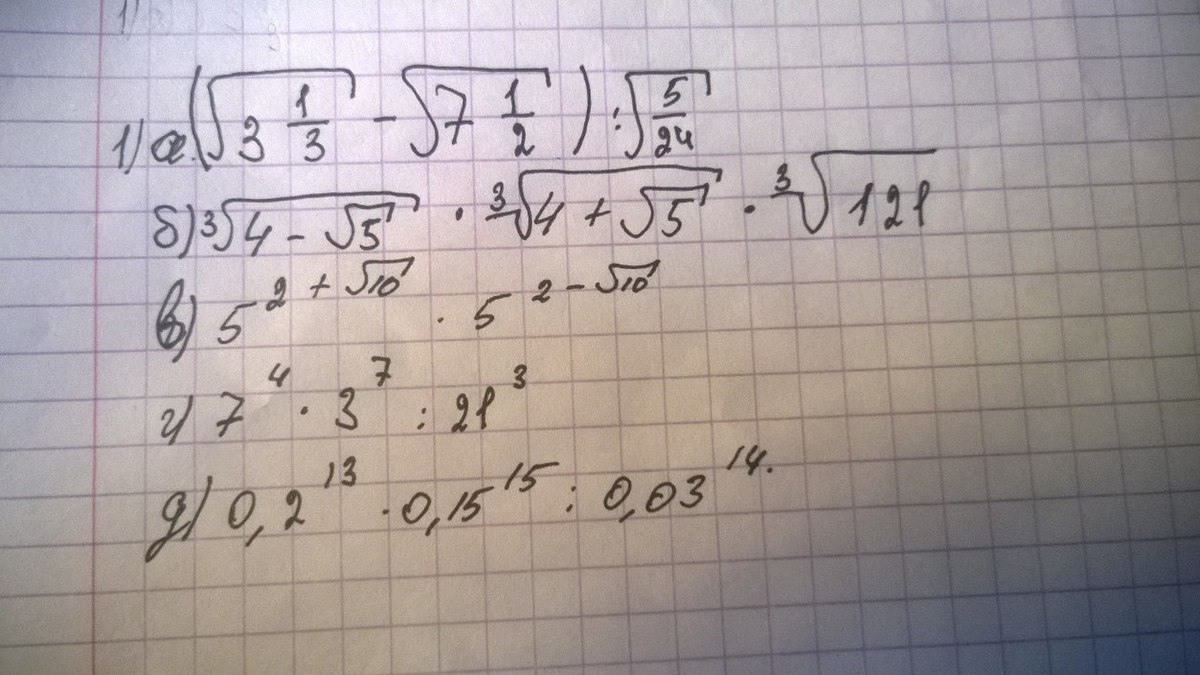 1) а. (√(3 1/3) - √(7 1/2)) : √(5/24)
б) ³√(4 - √5) · ³√(4 + √5) · ³√121
в) 5^(2 + √10) · 5^(2 - √10)
г) 7⁴ · 3⁷ : 21³
д) 0,2¹³ · 0,15¹⁵ : 0,03¹⁴.